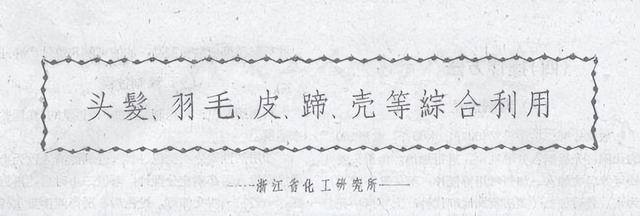 头髮、羽毛、皮、蹄、壳等綜合利用
——浙江省化工研究所——